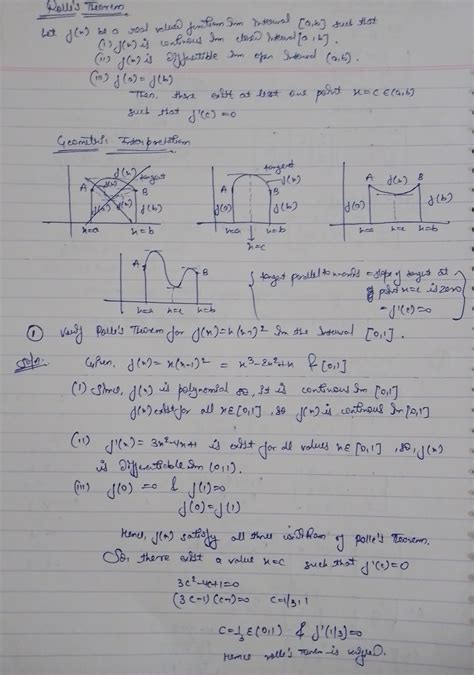 Rolle's Theorem
Let f(x) be a real valued function In Interval [a,b] such that
(i) f(x) is continous In closed Interval [a,b].
(ii) f(x) is differentible In open Interval (a,b).
(iii) f(a) = f(b)
Then, there exist at least one point x=c ∈(a,b)
such that f'(c)=0
Geometric Interpretation
tangent
f(x)
A
B
f(a)
f(b)
x=a
x=b
tangent
f(x)
A
B
f(a)
f(b)
x=a
x=b
x=c
A
f(x)
B
f(a)
f(b)
x=a
x=c
x=b
A
B
x=a
x=c
x=b
tangent parallel to x-axis = slope of tangent at
point x=c is zero
= f'(c)=0
① Verify Rolle's Theorem for f(x)=x(x-1)² In the Interval [0,1].
Soln. Given, f(x)= x(x-1)² = x³-2x²+x & [0,1]
(i) Since, f(x) is polynomial so, it is continous In [0,1]
f(x) exist for all x∈[0,1], so f(x) is continous In [0,1]
(ii) f'(x) = 3x²-4x+1 is exist for all values x∈[0,1], so, f(x)
is differentiable In (0,1).
(iii) f(0) =0 & f(1)=0
f(0)=f(1)
Hence, f(x) satisfy all three condition of Rolle's Theorem.
So, there exist a value x=c such that f'(c)=0
3c²-4c+1=0
(3c-1)(c-1)=0 c=1/3, 1
c=1/3 ∈(0,1) & f'(1/3)=0
Hence rolle's Theorem is verified.